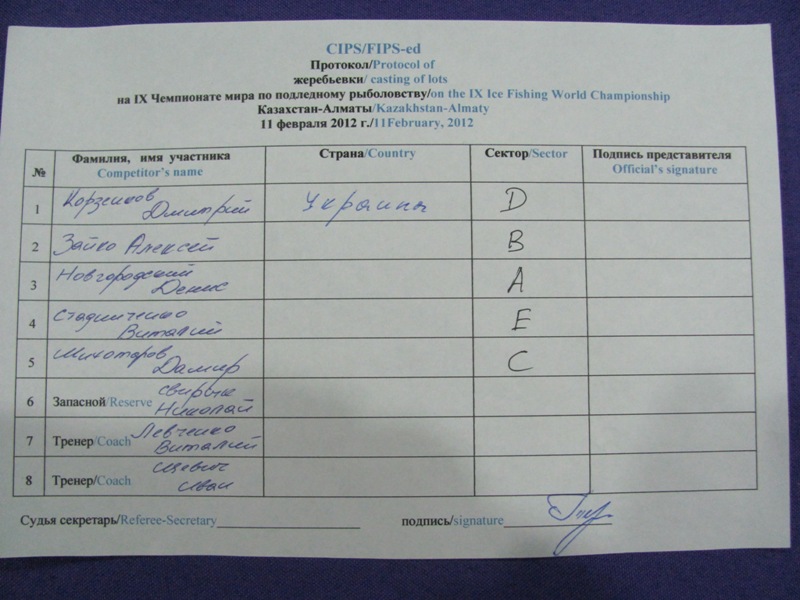 CIPS/FIPS-ed
Протокол/Protocol of
жеребьевки/ casting of lots
на IX Чемпионате мира по подледному рыболовству/on the IX Ice Fishing World Championship
Казахстан-Алматы/Kazakhstan-Almaty
11 февраля 2012 г./11February, 2012
№ Фамилия, имя участника Страна/Country Сектор/Sector Подпись представителя
Competitor's name Official's signature
1 Корзенков Дмитрий Украина D
2 Зайко Алексей B
3 Новгородский Денис A
4 Стадниченко Виталий E
5 Дамир C
6 Запасной/Reserve Николай
7 Тренер/Coach Левченко Виталий
8 Тренер/Coach Иван
Судья секретарь/Referee-Secretary подпись/signature